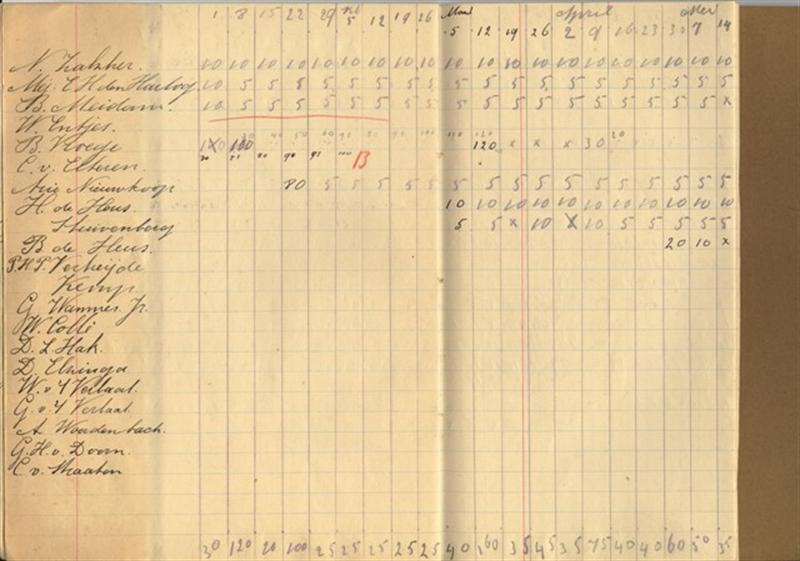 1 8 15 22 29 5 12 19 26 5 12 19 26 April 2 9 16 23 30 Mei 7 14
N. 10 10 10 10 10 10 10 10 10 10 10 10 10 10 10 10 10 10 10 10
Mej. 10 5 5 5 5 5 5 5 5 5 5 5 5 5 5 5 5 5 5 5
B. Meidam. 10 5 5 5 5 5 5 5 5 5 5 5 5 5 5 5 5 5 5 x
W. Entjes.
B. 120 x x x 30 20
C. v. Elteren. B
Arie Nieuwkoop 80 5 5 5 5 5 5 5 5 5 5 5 5 5 5 5 5
H. de Heus. 10 10 10 10 10 10 10 10 10 10 10
Stuivenberg 5 5 x 10 X 10 5 5 5 5 5
B de Heus. 20 10 x
P.H.P. Verheijde
Kemp.
G. Wammes Jr.
W. Colli
D. L. Hak.
D. Elzinga
W. v 't Verlaat.
G. v. 't Verlaat
A. Woerdenbach.
G. H. v. Doorn.
C. v. Straaten
30 120 20 100 25 25 25 25 25 40 160 35 45 35 75 40 40 60 50 35